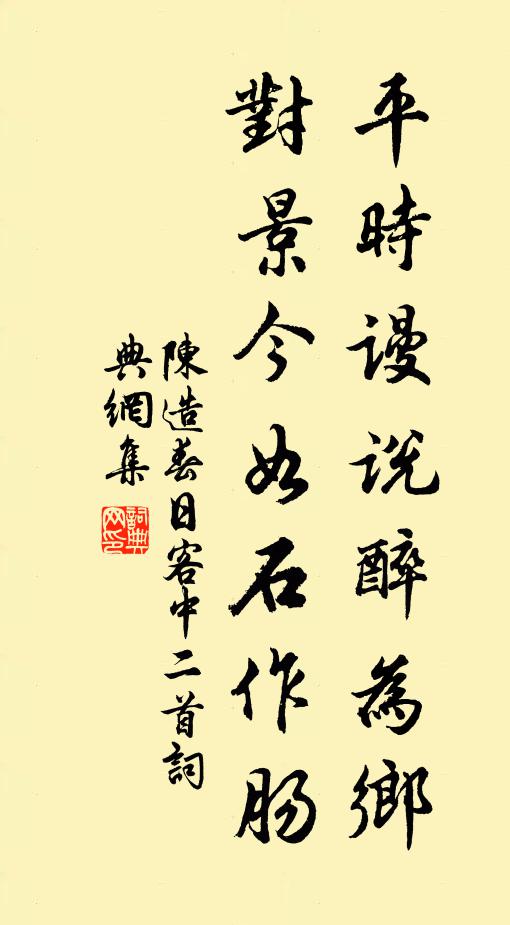 平時謾說醉為鄉
對景今如石作腸
陳造春日客中二首詞
典網集
詞典
网印